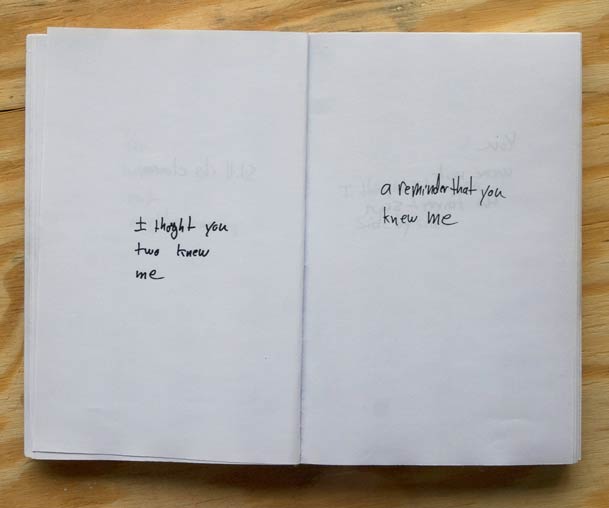 I thoght you
two knew
me
a reminder that you
knew me